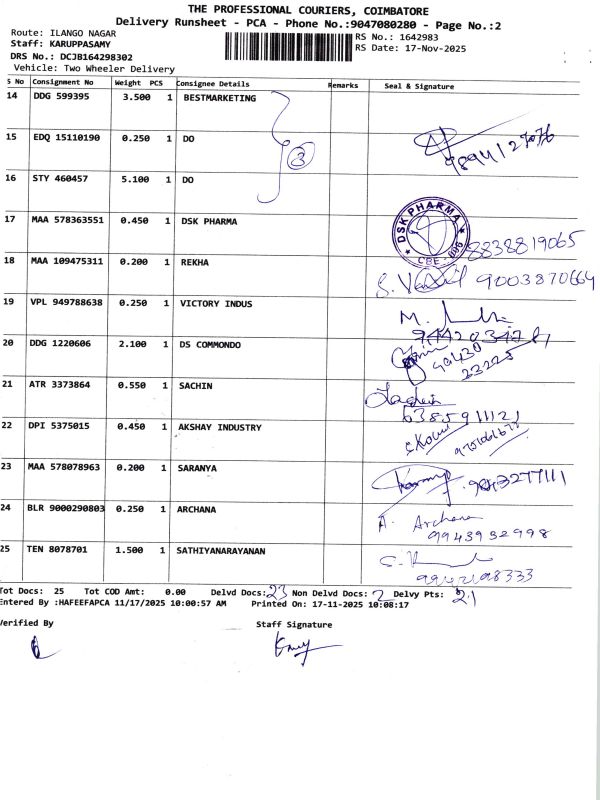 THE PROFESSIONAL COURIERS, COIMBATORE
Delivery Runsheet - PCA - Phone No.:9047080280 - Page No.:2
Route: ILANGO NAGAR
RS No.: 1642983
Staff: KARUPPASAMY
RS Date: 17-Nov-2025
DRS No.: DCJB164298302
Vehicle: Two Wheeler Delivery
S No Consignment No Weight PCS Consignee Details Remarks Seal & Signature
14 DDG 599395 3.500 1 BESTMARKETING
15 EDQ 15110190 0.250 1 DO
3
16 STY 460457 5.100 1 DO
17 MAA 578363551 0.450 1 DSK PHARMA
DSK PHARMA
CBE
8838819065
18 MAA 109475311 0.200 1 REKHA
9003870664
19 VPL 949788638 0.250 1 VICTORY INDUS
20 DDG 1220606 2.100 1 DS COMMONDO
99430
23225
21 ATR 3373864 0.550 1 SACHIN
6385911121
22 DPI 5375015 0.450 1 AKSHAY INDUSTRY
23 MAA 578078963 0.200 1 SARANYA
24 BLR 9000290803 0.250 1 ARCHANA
A. Archana
9943932998
25 TEN 8078701 1.500 1 SATHIYANARAYANAN
Tot Docs: 25 Tot COD Amt: 0.00 Delvd Docs: 23 Non Delvd Docs: 2 Delvy Pts: 21
Entered By :HAFEEFAPCA 11/17/2025 10:00:57 AM Printed On: 17-11-2025 10:08:17
Verified By
Staff Signature